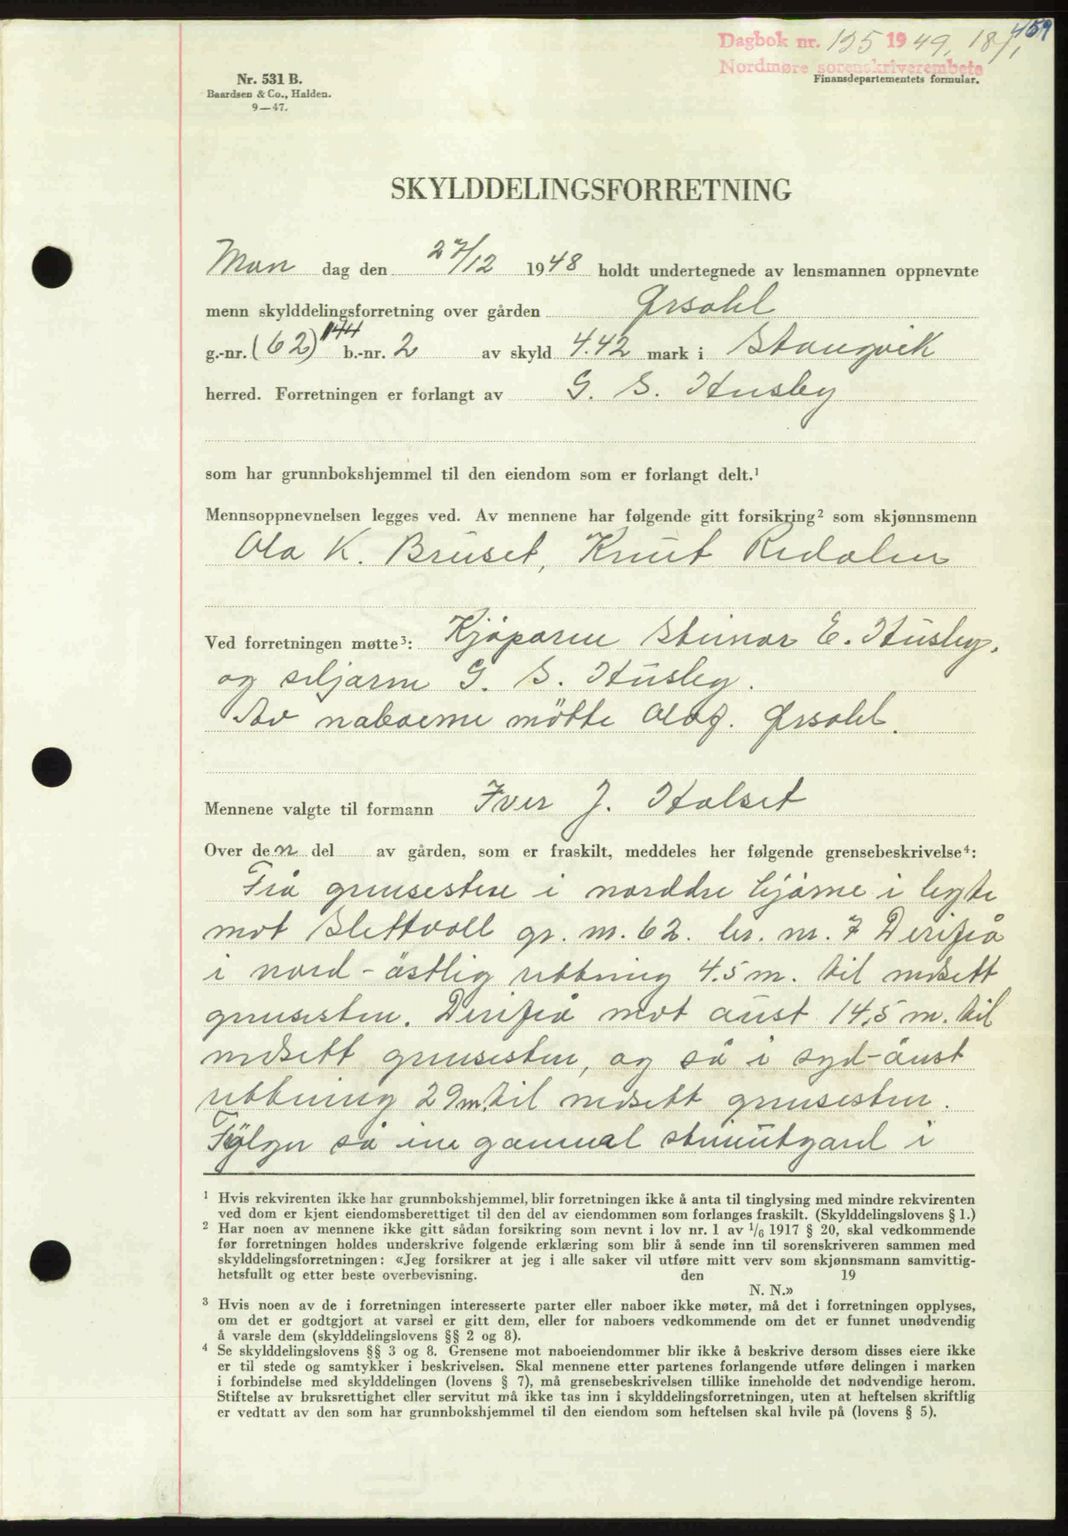 459
Dagbok nr. 195 1949, 18/1,
Nordmøre sorenskriverembete
Nr. 531 B.
Baardsen & Co., Halden.
9—47.
Finansdepartementets formular.
SKYLDDELINGSFORRETNING
Man dag den 27/12 1948 holdt undertegnede av lensmannen oppnevnte
menn skylddelingsforretning over gården Ørsahl
g.-nr. (62) 144 b.-nr. 2 av skyld 4.42 mark i Stangvik
herred. Forretningen er forlangt av G. S. Husby
som har grunnbokshjemmel til den eiendom som er forlangt delt.¹
Mennsoppnevnelsen legges ved. Av mennene har følgende gitt forsikring² som skjønnsmenn
Ola K. Bruset, Knut Redalen
Ved forretningen møtte³: Kjøparen Steinar E. Husby,
og seljarne G. S. Husby.
Av naboerne møtte Olaf. Ørsahl.
Mennene valgte til formann Iver J. Halset
Over den del av gården, som er fraskilt, meddeles her følgende grensebeskrivelse⁴:
Frå grensestene i norddre hjørne i legte
mot Slettvoll gr. nr. 62. br. nr. 7 Derifrå
i nord-östlig rettning 4.5 m. til nedsett
grensesten. Derifrå mot aust 14,5 m. til
nedsett grensesten, og så i syd-aust
rettning 29 m. til nedsett grensesten.
Fylger så ine gammal steinutgard i
¹ Hvis rekvirenten ikke har grunnbokshjemmel, blir forretningen ikke å anta til tinglysing med mindre rekvirenten
ved dom er kjent eiendomsberettiget til den del av eiendommen som forlanges fraskilt. (Skylddelingslovens § 1.)
² Har noen av mennene ikke gitt sådan forsikring som nevnt i lov nr. 1 av 1/6 1917 § 20, skal vedkommende
før forretningen holdes underskrive følgende erklæring som blir å sende inn til sorenskriveren sammen med
skylddelingsforretningen: «Jeg forsikrer at jeg i alle saker vil utføre mitt verv som skjønnsmann samvittig-
hetsfullt og etter beste overbevisning. den 19
N. N.»
³ Hvis noen av de i forretningen interesserte parter eller naboer ikke møter, må det i forretningen opplyses,
om det er godtgjort at varsel er gitt dem, eller for naboers vedkommende om det er funnet unødvendig
å varsle dem (skylddelingslovens §§ 2 og 8).
⁴ Se skylddelingslovens §§ 3 og 8. Grensene mot naboeiendommer blir ikke å beskrive dersom disses eiere ikke
er til stede og samtykker i beskrivelsen. Skal mennene etter partenes forlangende utføre delingen i marken
i forbindelse med skylddelingen (lovens § 7), må grensebeskrivelsen tillike inneholde det nødvendige herom.
Stiftelse av bruksrettighet eller servitut må ikke tas inn i skylddelingsforretningen, uten at heftelsen skriftlig
er vedtatt av den som har grunnbokshjemmel til den eiendom som heftelsen skal hvile på (lovens § 5).